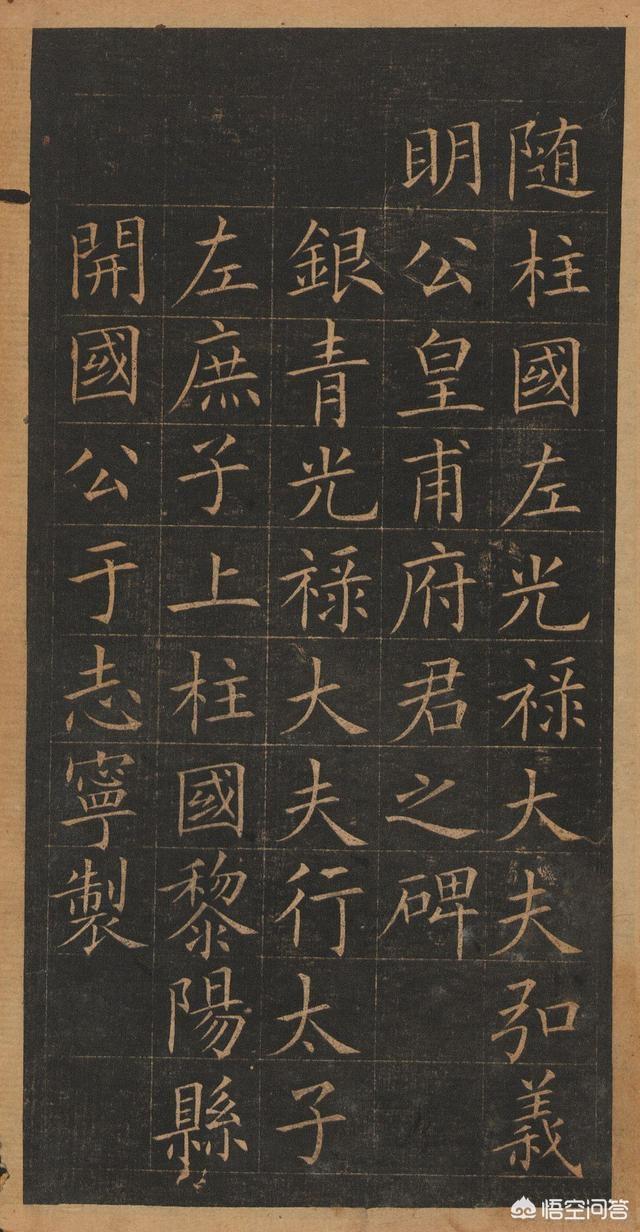 随柱國左光祿大夫弘義
明公皇甫府君之碑
銀青光祿大夫行太子
左庶子上柱國黎陽縣
開國公于志寧製
悟空问答